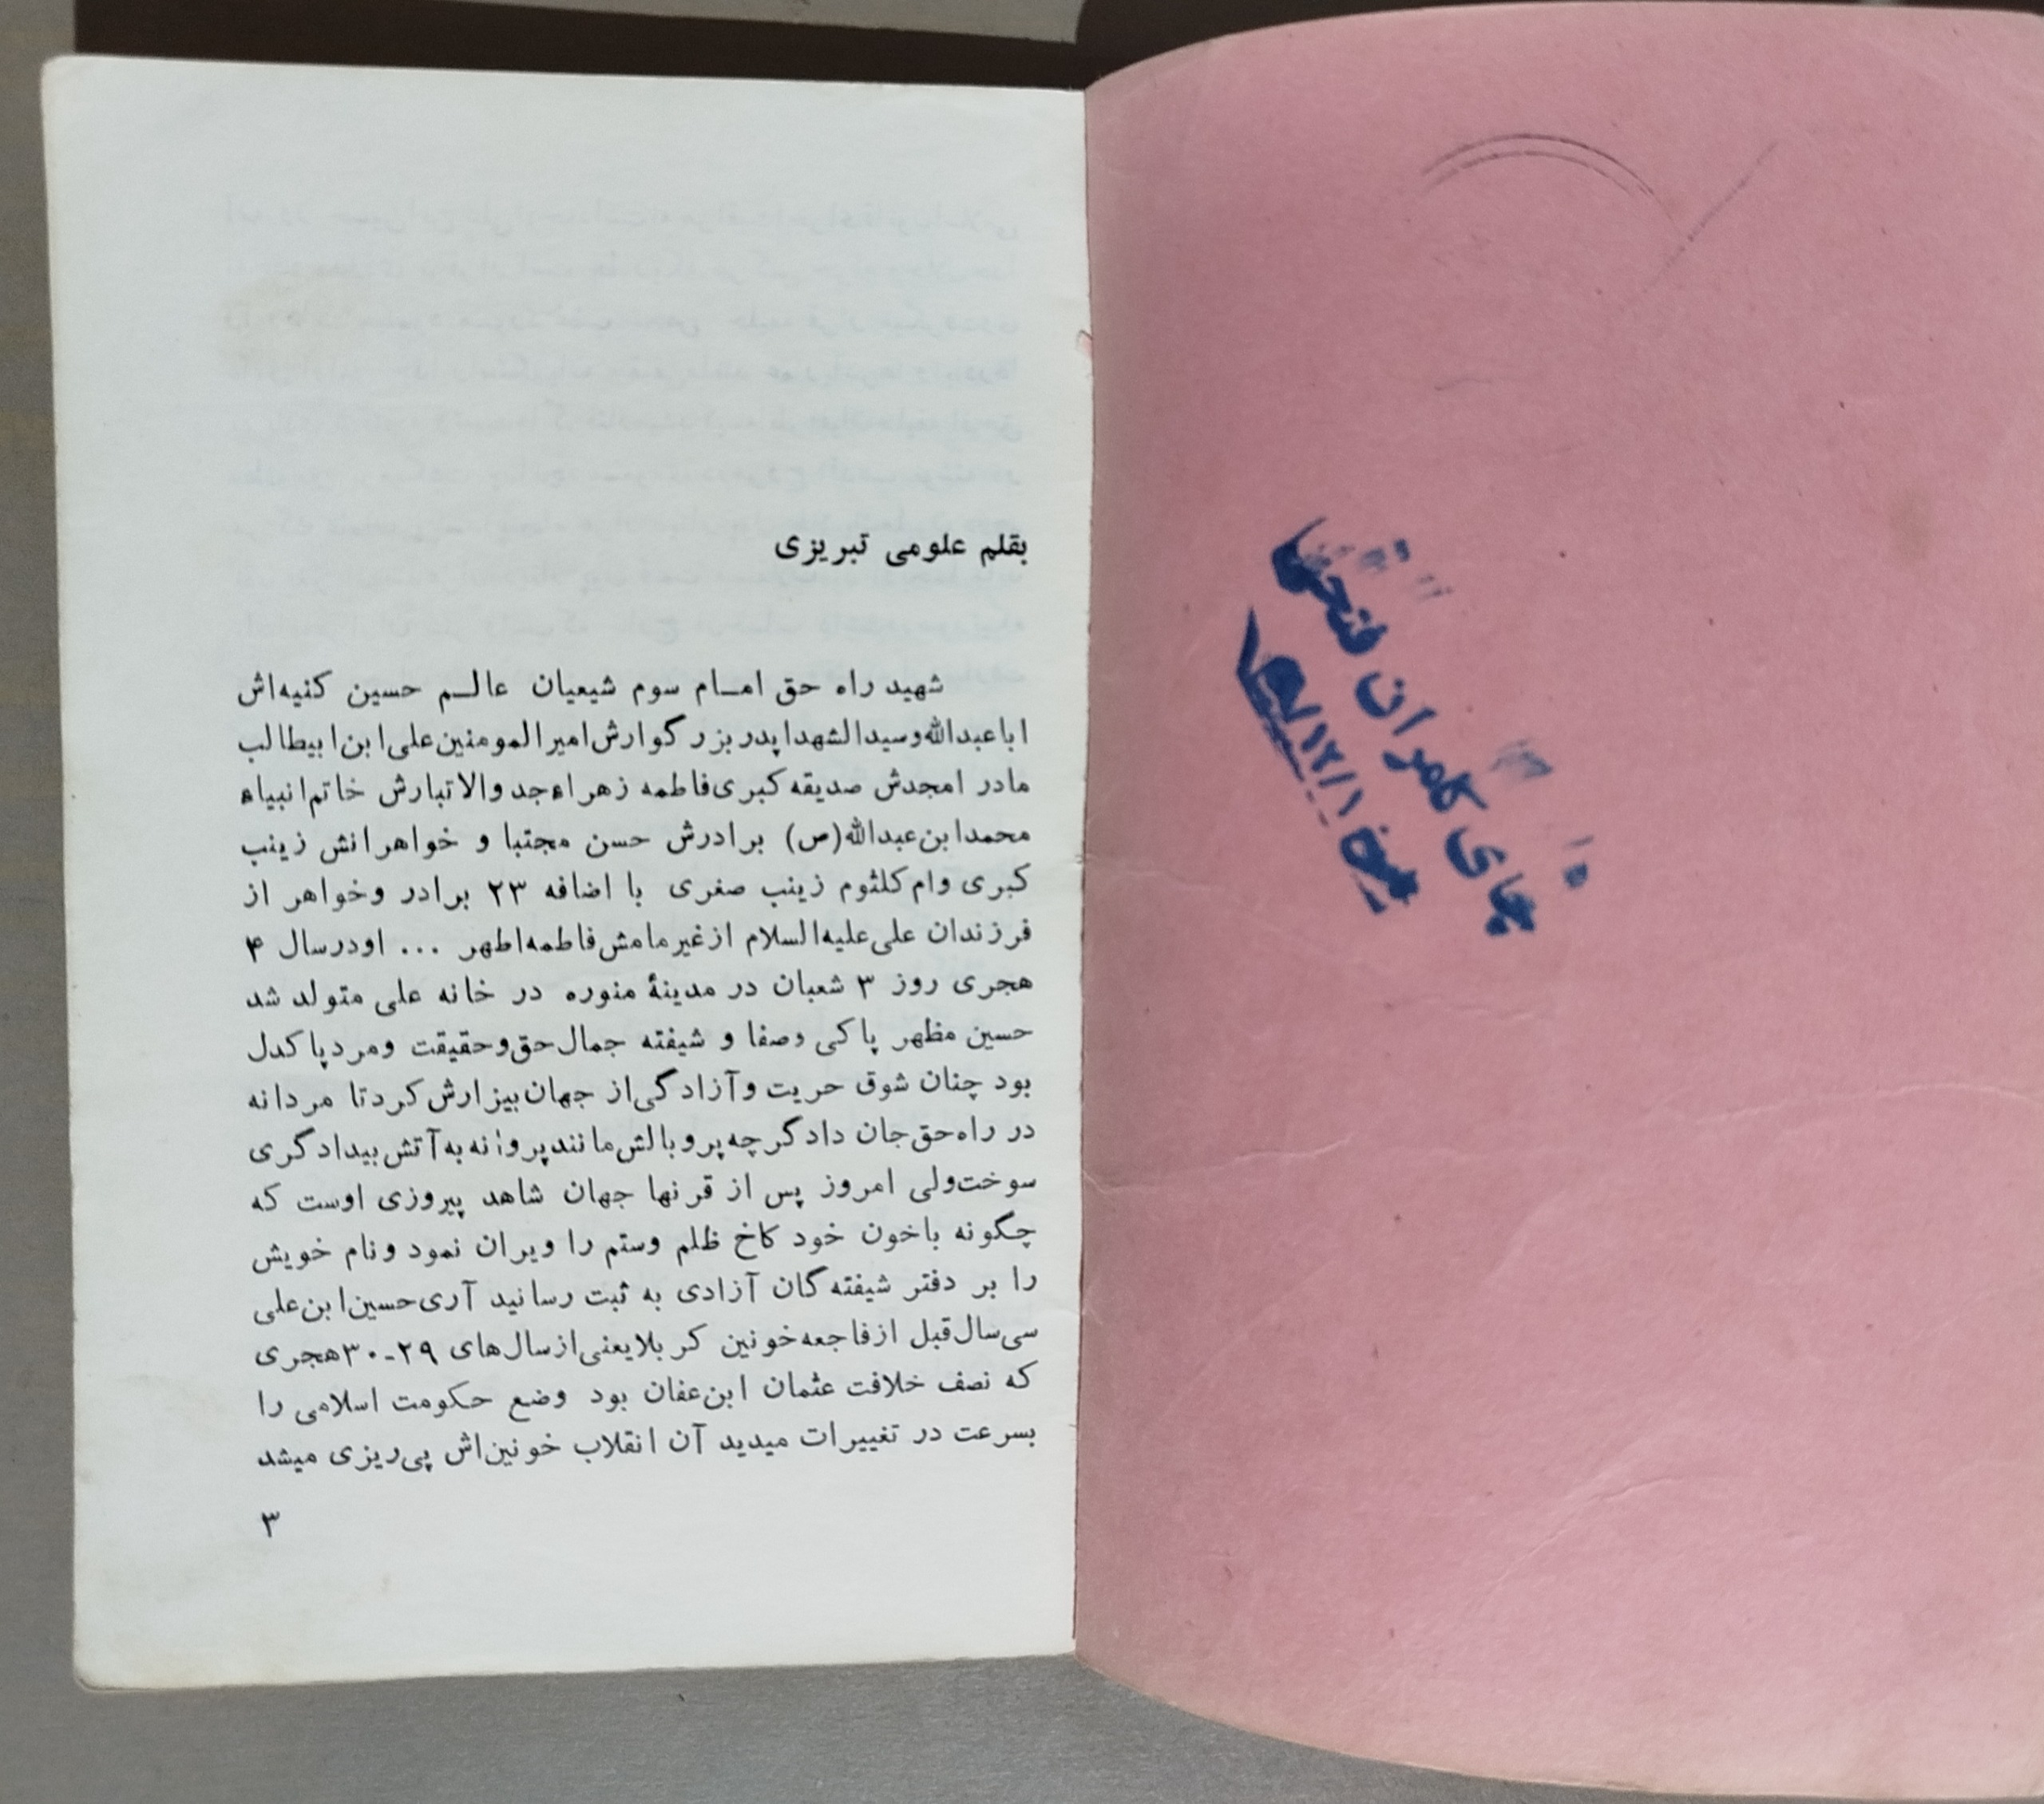 چای کامران فتحی
بقلم علومی تبریزی
شهید راه حق امـام سوم شیعیان عالـم حسین کنیه‌اش
اباعبدالله‌وسیدالشهداپدربزرگوارش‌امیرالمومنین‌علی‌ابن‌ابیطالب
مادر امجدش صدیقه کبری‌فاطمه زهراءجد والاتبارش خاتم‌انبیاء
محمدابن‌عبدالله(ص) برادرش حسن مجتبا و خواهرانش زینب
کبری وام‌کلثوم زینب صغری با اضافه ۲۳ برادر وخواهر از
فرزندان علی‌علیه‌السلام ازغیرمامش‌فاطمه‌اطهر ... اودرسال ۴
هجری روز ۳ شعبان در مدینهٔ منوره در خانه علی متولد شد
حسین مظهر پاکی وصفا و شیفته جمال‌حق‌وحقیقت ومردپاکدل
بود چنان شوق حریت وآزادگی‌از جهان‌بیزارش‌کردتا مردانه
در راه‌حق‌جان دادگرچه‌پروبالش‌مانندپروانه‌به‌آتش‌بیدادگری
سوخت‌ولی امروز پس از قرنها جهان شاهد پیروزی اوست که
چگونه باخون خود کاخ ظلم وستم را ویران نمود ونام خویش
را بر دفتر شیفته‌گان آزادی به ثبت رسانید آری‌حسین‌ابن‌علی
سی‌سال‌قبل ازفاجعه‌خونین کربلایعنی‌ازسال‌های ۲۹-۳۰هجری
که نصف خلافت عثمان ابن‌عفان بود وضع حکومت اسلامی را
بسرعت در تغییرات میدید آن انقلاب خونین‌اش پی‌ریزی میشد
۳